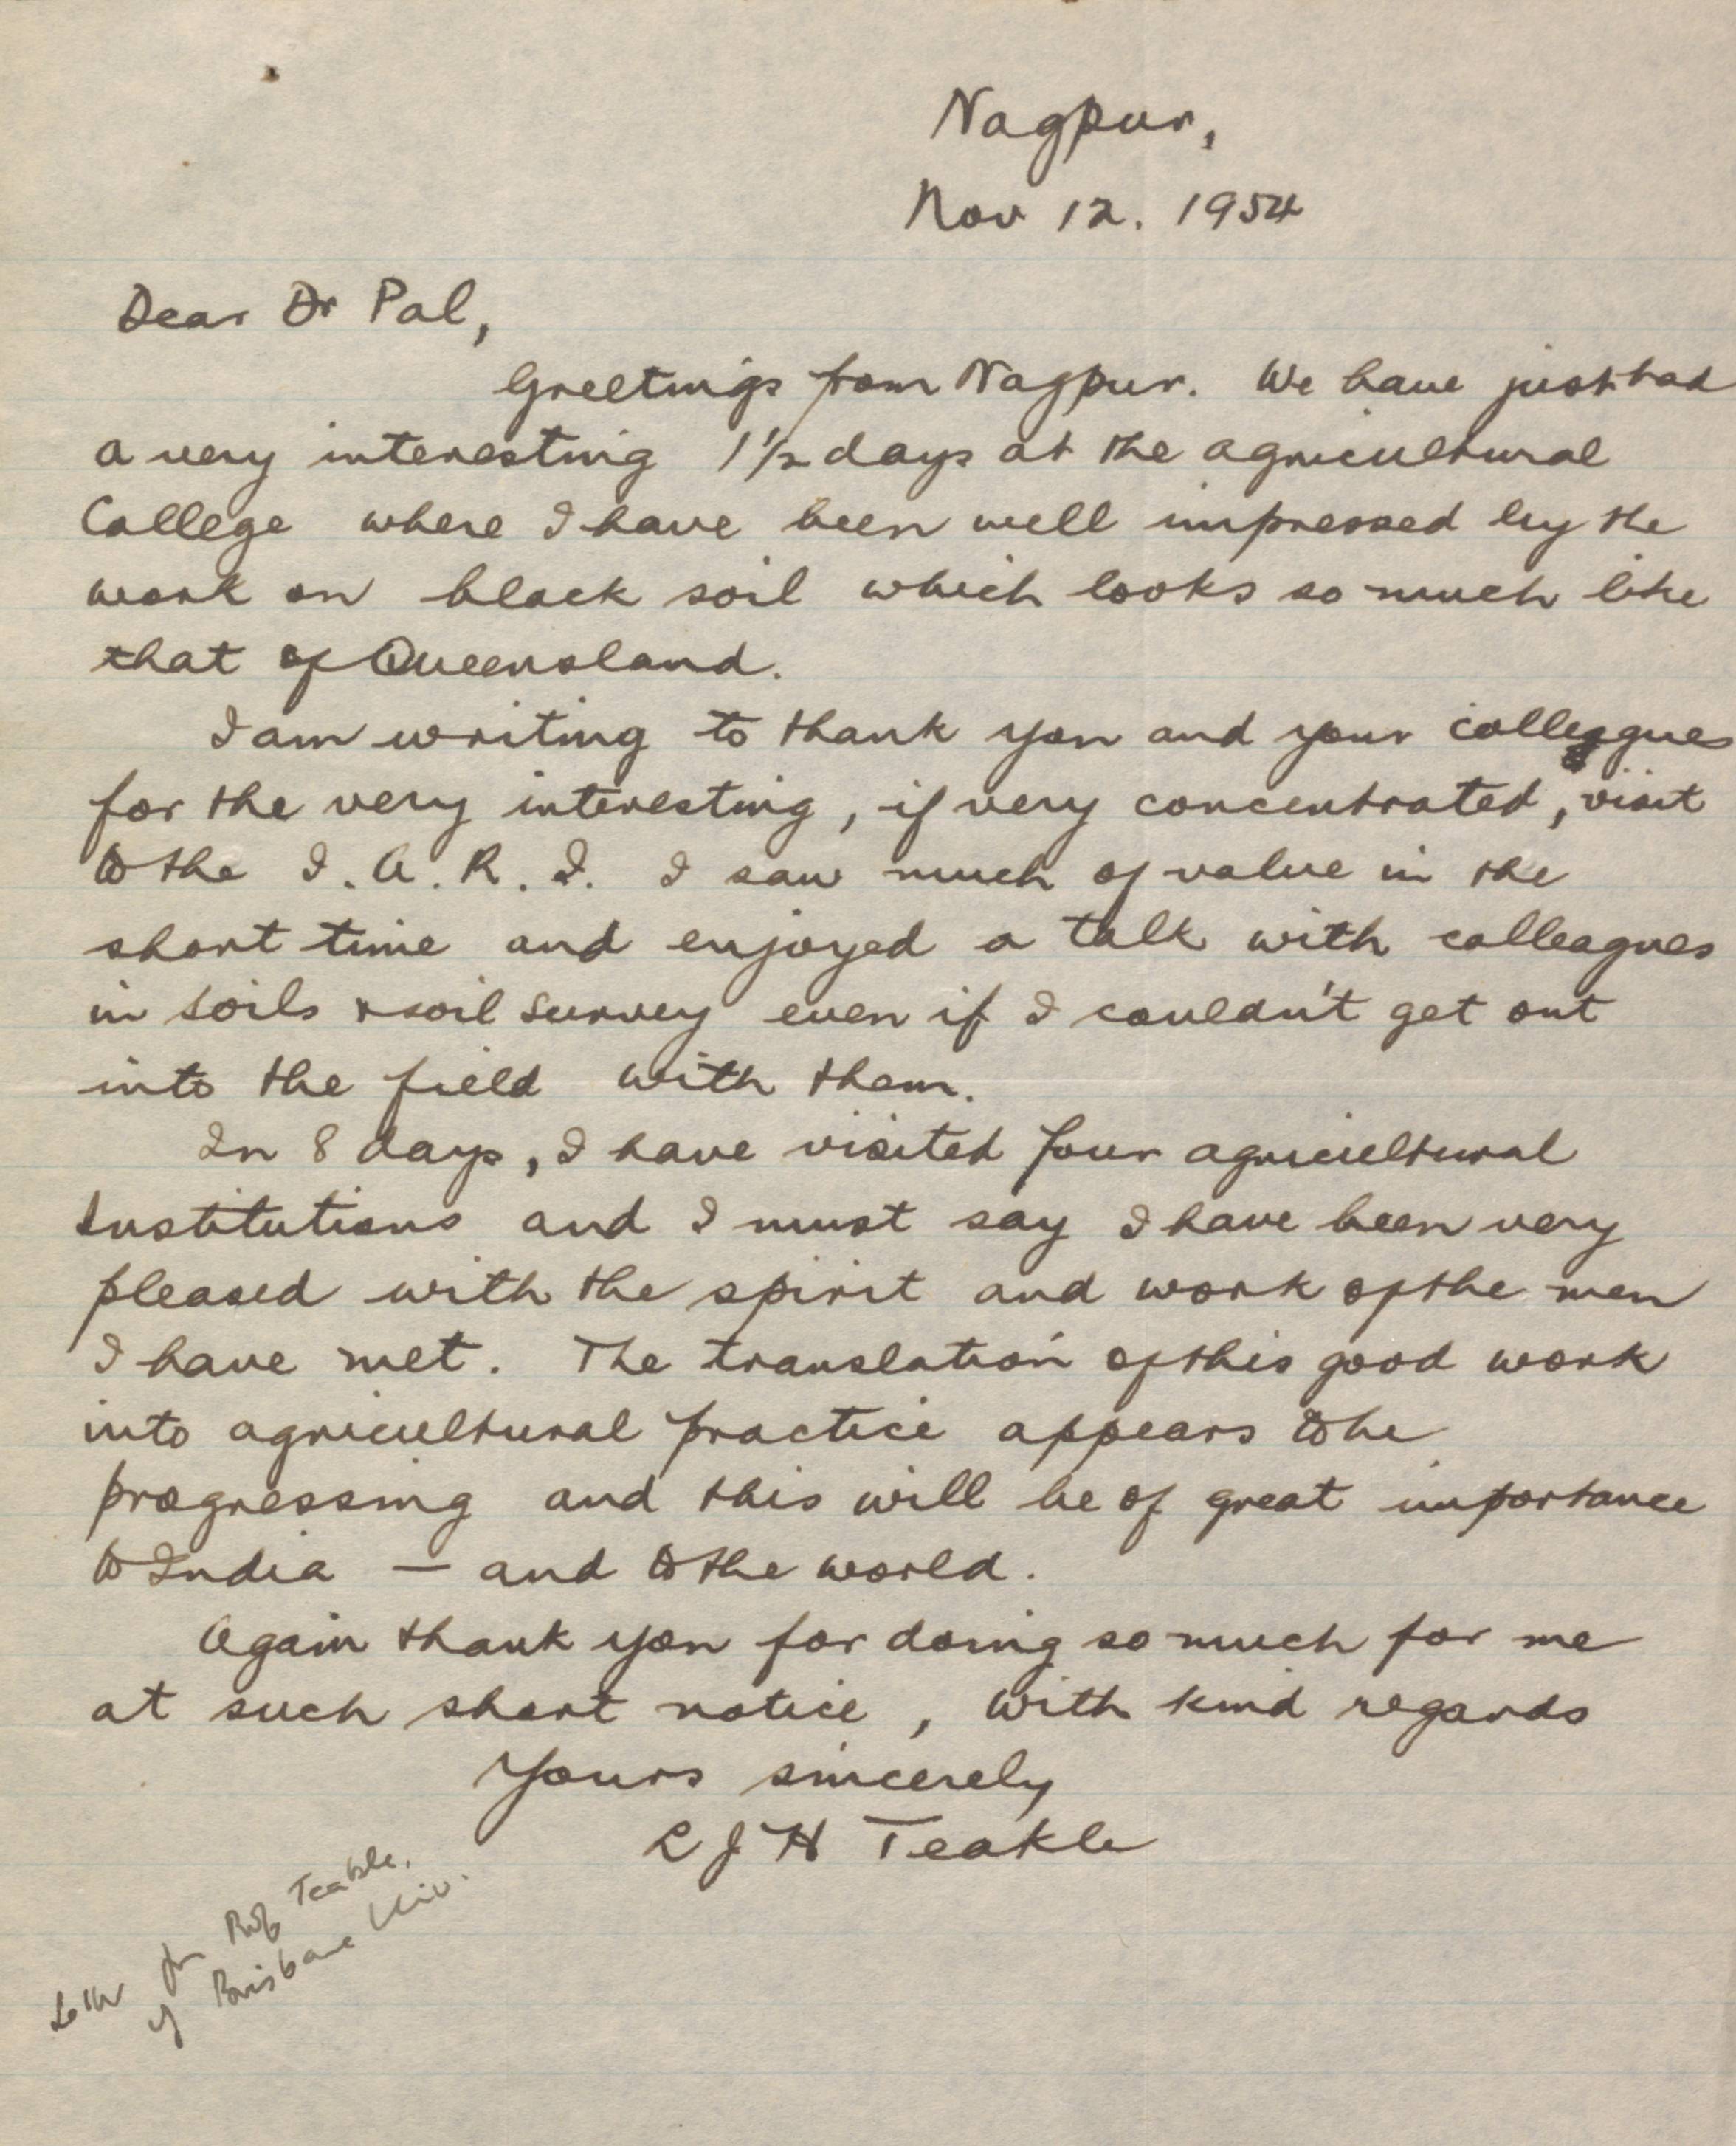 Nagpur,
Nov 12. 1954
Dear Dr Pal,
Greetings from Nagpur. We have just had
a very interesting 1½ days at the agricultural
College where I have been well impressed by the
work on black soil which looks so much like
that of Queensland.
I am writing to thank you and your colleagues
for the very interesting, if very concentrated, visit
to the I.A.R.I. I saw much of value in the
short time and enjoyed a talk with colleagues
in soils & soil survey even if I couldn't get out
into the field with them.
In 8 days, I have visited four agricultural
Institutions and I must say I have been very
pleased with the spirit and work of the men
I have met. The translation of this good work
into agricultural practice appears to be
progressing and this will be of great importance
to India — and to the world.
Again thank you for doing so much for me
at such short notice, with kind regards
Yours sincerely
L J H Teakle
Letter fr Prof Teakle.
of Brisbane Univ.